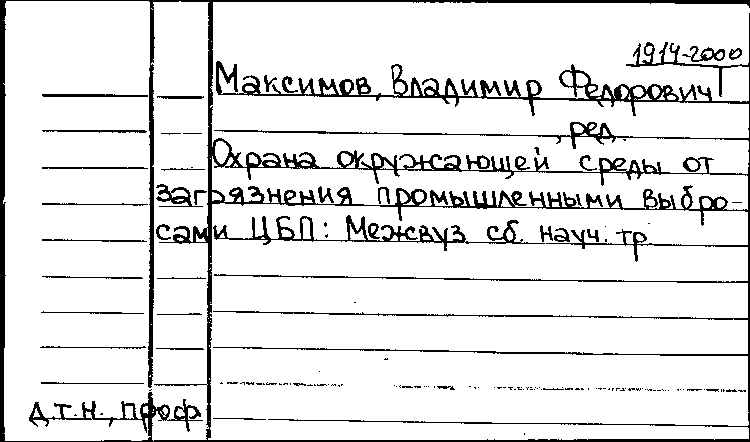 1914-2000
Максимов, Владимир Федорович
, ред.
Охрана окружающей среды от
загрязнения промышленными выбро-
сами ЦБП: Межвуз. сб. науч. тр
д.т.н., проф